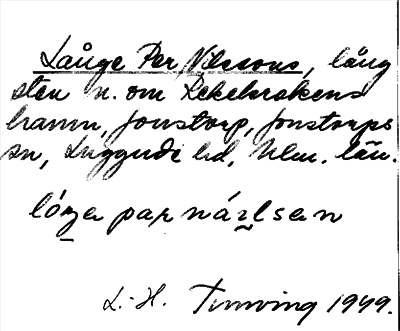 Långe Per Nilssons, lång
sten n. om Rekekrokens
hamn, Jonstorp, Jonstorps
sn, Luggude hd, Mlm. län.
lóŋa par nárlsan
L.-H. Tunving 1949.